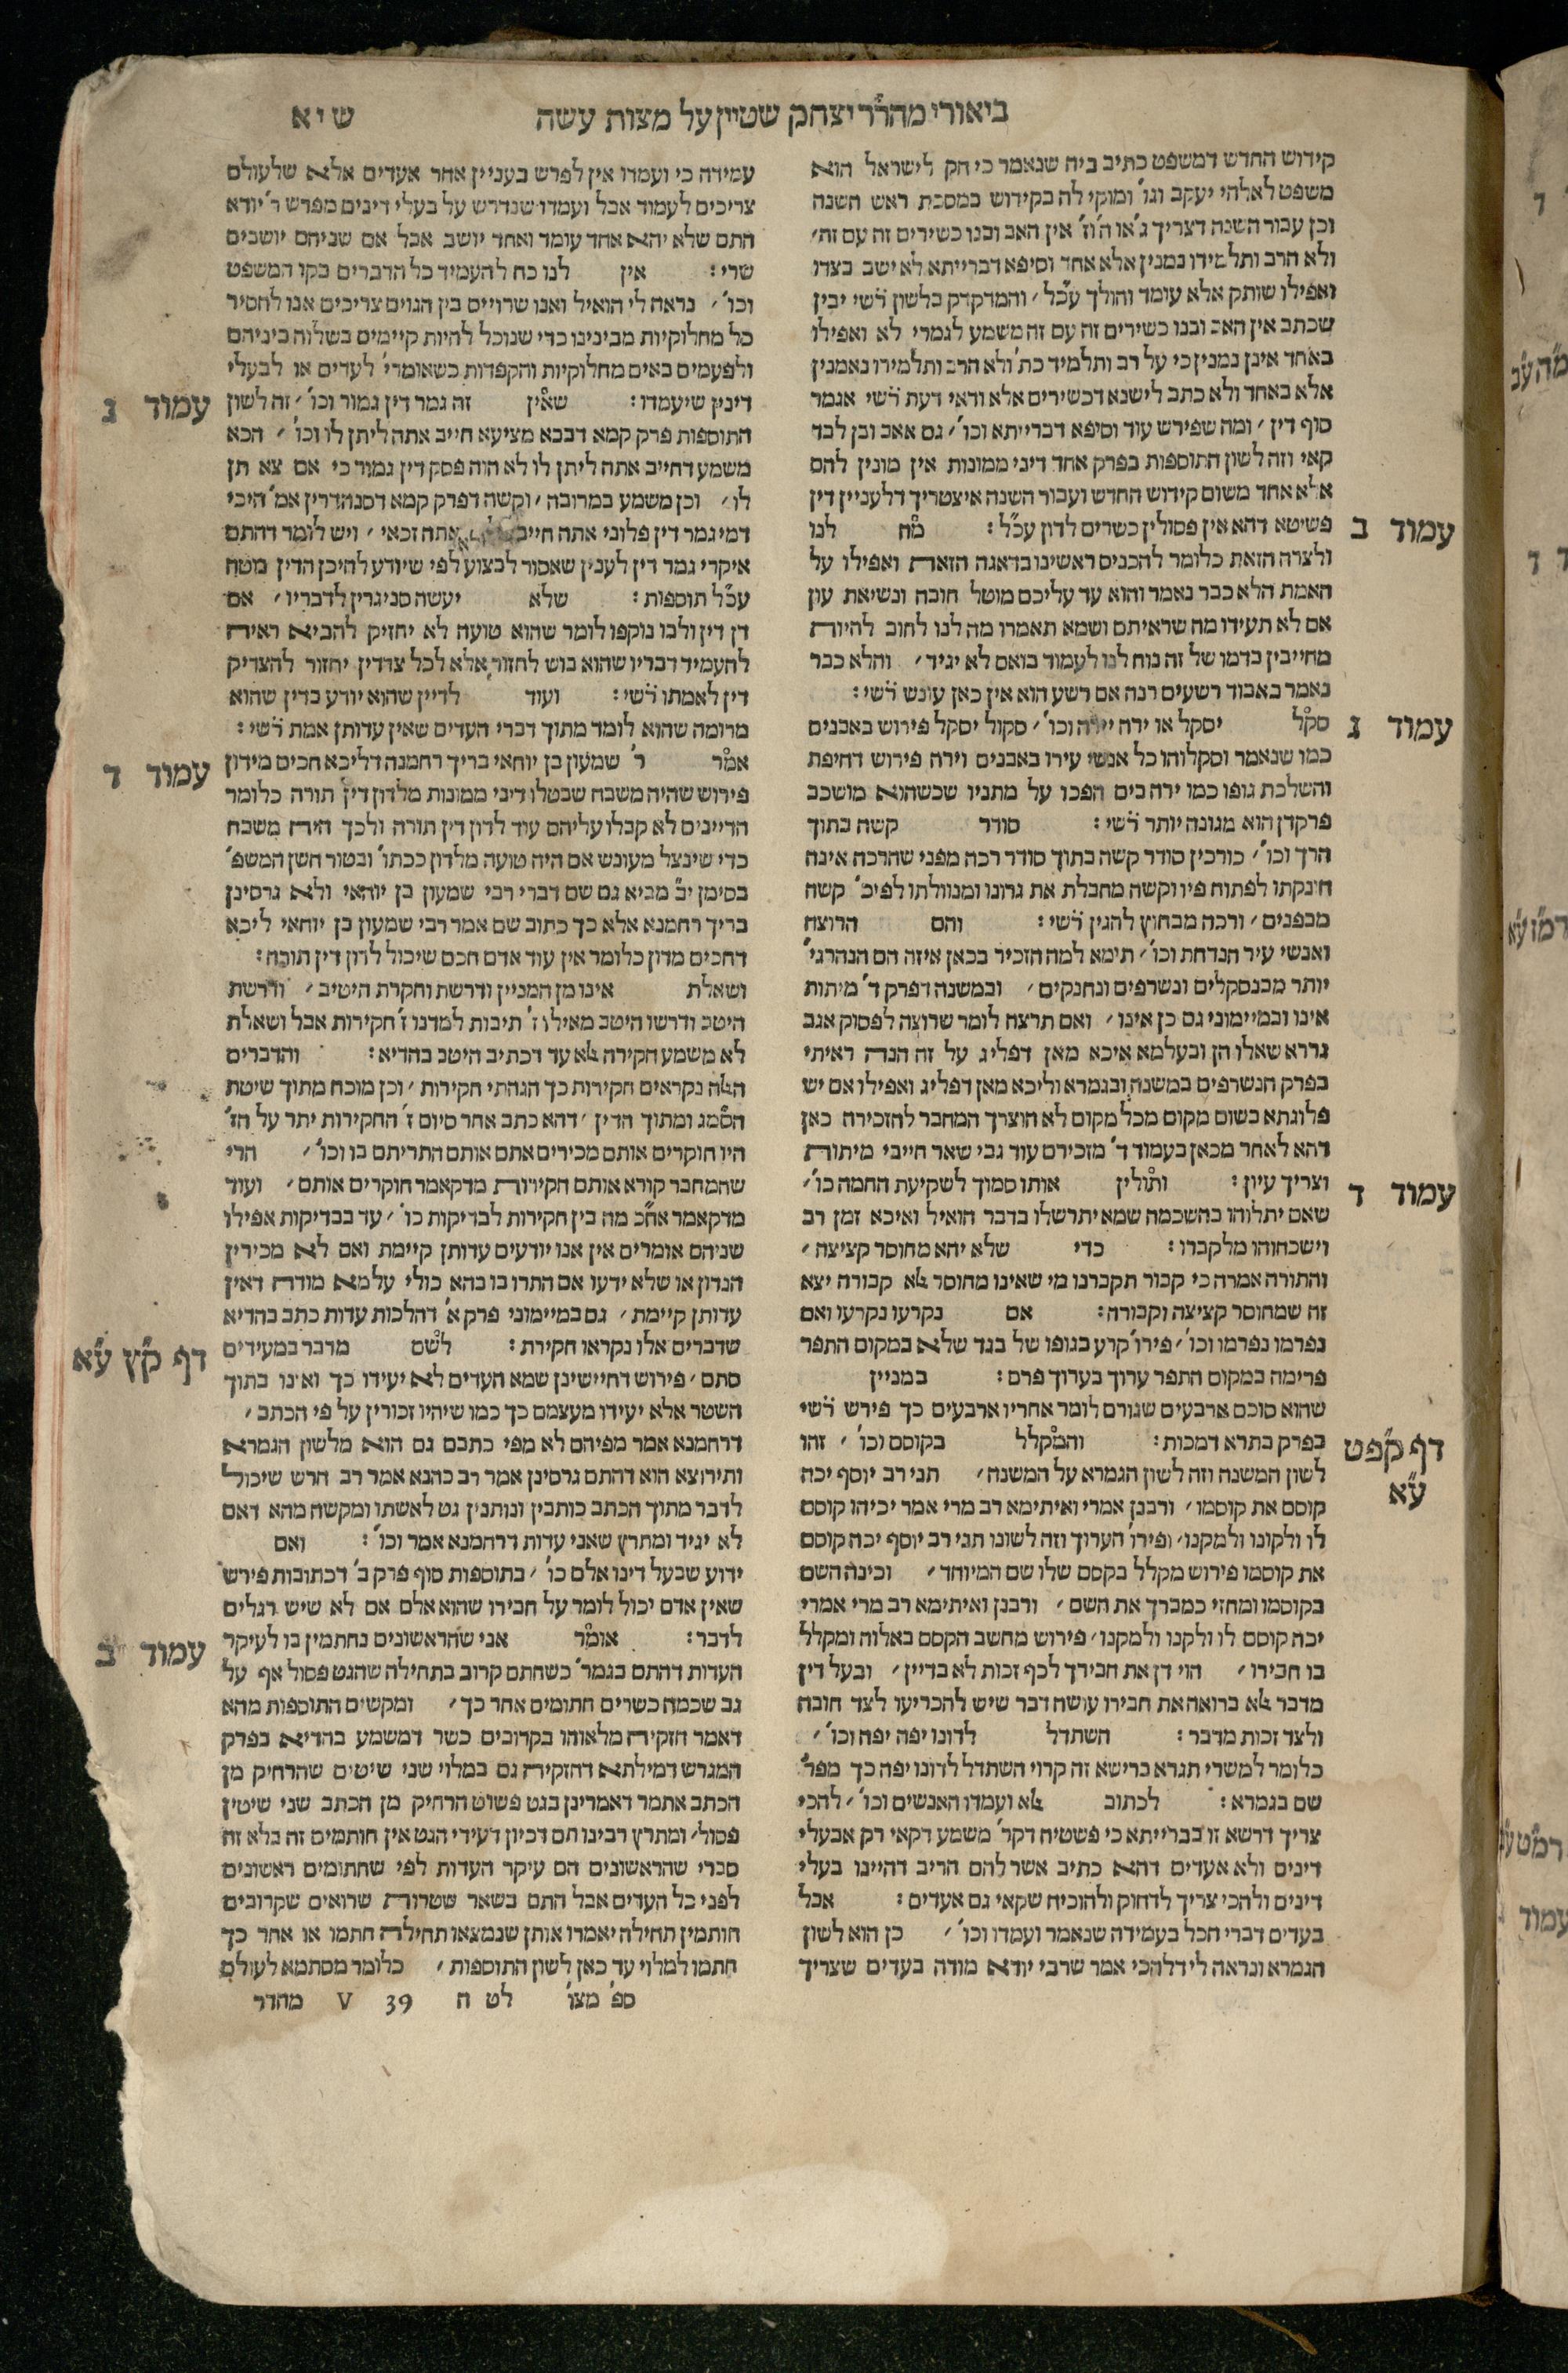 ביאורי מהר״ר יצחק שטיין על מצות עשה
שיא
קידוש החדש דמשפט כתיב ביה שנאמר כי חק לישראל הוא
משפט לאלהי יעקב וגו׳ ומוקי לה בקידוש במסכת ראש השנה
וכן עבור השנה דצריך ג׳ או ה׳ וז׳ אין האב ובנו כשירים זה עם זה׳
ולא הרב ותלמידו נמנין אלא אחד וסיפא דברייתא לא ישב בצדו
ואפילו שותק אלא עומד והולך עכ״ל׳ והמדקדק בלשון רש״י יבין
שכתב אין האב ובנו כשירים זה עם זה משמע לגמרי לא ואפילו
באחד אינן נמנין כי על רב ותלמיד כת׳ ולא הרב ותלמידו נאמנין
אלא באחד ולא כתב לישנא דכשירים אלא ודאי דעת רש״י אגמר
סוף דין׳ ומה שפירש עוד וסיפא דברייתא וכו׳׳ גם אאב ובן לבד
קאי וזה לשון התוספות בפרק אחד דיני ממונות אין מונין להם
אלא אחד משום קידוש החדש ועבור השנה איצטריך דלעניין דין
פשיטא דהא אין פסולין כשרים לדון עכ״ל: מה לנו
עמוד ב
ולצרה הזאת כלומר להכניס ראשינו בדאגה הזאת ואפילו על
האמת הלא כבר נאמר והוא עד עליכם מוטל חובה ונשיאת עון
אם לא תעידו מה שראיתם ושמא תאמרו מה לנו לחוב להיות
מחייבין בדמו של זה נוח לנו לעמוד בואם לא יגיד׳ והלא כבר
נאמר באבוד רשעים רנה אם רשע הוא אין כאן עונש רש״י:
סקל יסקל או ירה יירה וכו׳׳ סקול יסקל פירוש באבנים
עמוד ג
כמו שנאמר וסקלוהו כל אנשי עירו באבנים וירה פירוש דחיפת
והשלכת גופו כמו ירה בים הפכו על מתניו שכשהוא מושכב
פרקדן הוא מגונה יותר רש״י: סודר קשה בתוך
הרך וכו׳׳ כורכין סודר קשה בתוך סודר רכה מפני שהרכה אינה
חונקתו לפתוח פיו וקשה מחבלת את גרונו ומנוולתו לפיכ׳ קשה
מבפנים׳ ורכה מבחוץ להגין רש״י: והם הרוצח
ואנשי עיר הנדחת וכו׳׳ תימא למה הזכיר בכאן איזה הם הנהרגי׳
יותר מבנסקלים ונשרפים ונחנקים׳ ובמשנה דפרק ד׳ מיתות
אינו ובמיימוני גם כן אינו׳ ואם תרצה לומר שרוצה לפסוק אגב
גררא שאלו הן ובעלמא איכא מאן דפליג על זה הנה ראיתי
בפרק הנשרפים במשנה ובגמרא וליכא מאן דפליג ואפילו אם יש
פלוגתא בשום מקום מכל מקום לא הוצרך המחבר להזכירה כאן
דהא לאחר מכאן בעמוד ד׳ מזכירם עוד גבי שאר חייבי מיתות
וצריך עיון: ותולין אותו סמוך לשקיעת החמה כו׳׳
עמוד ד
שאם יתלוהו בהשכמה שמא יתרשלו בדבר הואיל ואיכא זמן רב
וישכחוהו מלקברו: כדי שלא יהא מחוסר קציצה׳
והתורה אמרה כי קבור תקברנו מי שאינו מחוסר אלא קבורה יצא
זה שמחוסר קציצה וקבורה: אם נקרעו נקרעו ואם
נפרמו נפרמו וכו׳׳ פירו׳ קוע בגופו של בגד שלא במקום התפר
פרימה במקום התפר ערוך בערוך פרם: במניין
שהוא סוכם ארבעים שגורם לומר אחריו ארבעים כך פירש רש״י
בפרק בתרא דמכות: והמקלל בקוסם וכו׳׳ זהו
דף קפט ע״א
לשון המשנה וזה לשון הגמרא על המשנה׳ תני רב יוסף יכה
קוסם את קוסמו׳ ורבנן אמרי ואיתימא רב מרי אמר יכיהו קוסם
לו ולקונו ולמקנו׳ ופירו׳ הערוך וזה לשונו תני רב יוסף יכה קוסם
את קוסמו פירוש מקלל בקסם שלו שם המיוחד׳ וכינה השם
בקוסמו ומחזי כמברך את השם׳ ורבנן ואיתימא רב מרי אמרי
יכה קוסם לו ולקנו ולמקנו׳ פירוש מחשב הקסם באלוה ומקלל
בו חבירו׳ הוי דן את חבירך לכף זכות לא בדיין׳ ובעל דין
מדבר אלא ברואה את חבירו עושה דבר שיש להכריעו לצד חובה
ולצד זכות מדבר: השתדל לדונו יפה יפה וכו׳׳
כלומר למשרי תגרא ברישא זה קרוי השתדל לדונו יפה כך מפר׳
שם בגמרא: לכתוב אלא ועמדו האנשים וכו׳׳ להכי
צריך דרשא זו בברייתא כי פשטיה דקר׳ משמע דקאי רק אבעלי
דינים ולא אעדים דהא כתיב אשר להם הריב דהיינו בעלי
דינים ולהכי צריך לדחוק ולהוכיח שקאי גם אעדים: אבל
בעדים דברי הכל בעמידה שנאמר ועמדו וכו׳׳ כן הוא לשון
הגמרא ונראה לי דלהכי אמר שרבי יודא מודה בעדים שצריך
עמידה כי ועמדו אין לפרש בעניין אחר אעדים אלא שלעולם
צריכים לעמוד אבל ועמדו שנדרש על בעלי דינים מפרש ר׳ יודא
התם שלא יהא אחד עומד ואחד יושב אבל אם שניהם יושבים
שרי: אין לנו כח להעמיד כל הדברים בקו המשפט
וכו׳׳ נראה לי הואיל ואנו שרויים בין הגוים צריכים אנו להסיר
כל מחלוקיות מבינינו כדי שנוכל להיות קיימים בשלוה ביניהם
ולפעמים באים מחלוקיות והקפדות כשאומרי׳ לעדים או לבעלי
דינין שיעמדו: שאין זה גמר דין גמור וכו׳׳ זה לשון
עמוד ג
התוספות פרק קמא דבבא מציעא חייב אתה ליתן לו וכו׳׳ הכא
משמע דחייב אתה ליתן לו לא הוה פסק דין גמור כי אם צא תן
לו׳ וכן משמע במרובה׳ וקשה דפרק קמא דסנהדרין אמ׳ היכי
דמי גמר דין פלוני אתה חייב אתה זכאי׳ ויש לומר דהתם
איקרי גמר דין לענין שאסור לבצוע לפי שיודע להיכן הדין נוטה
עכ״ל תוספות: שלא יעשה סניגרין לדבריו׳ אם
דן דין ולבו נוקפו לומר שהוא טועה לא יחזיק להביא ראיה
להעמיד דבריו שהוא בוש לחזור אלא לכל צדדין יחזור להצדיק
דין לאמתו רש״י: ועוד לדיין שהוא יודע בדין שהוא
מרומה שהוא לומד מתוך דברי העדים שאין עדותן אמת רש״י:
אמר ר׳ שמעון בן יוחאי בריך רחמנה דליכא חכים מידון
עמוד ד
פירוש שהיה משבח שבטלו דיני ממונות מלדון דין תורה כלומר
הדיינים לא קבלו עליהם עוד לדון דין תורה ולכך היה משבח
כדי שינצל מעונש אם היה טועה מלדון ככתו׳ ובטור חשן המשפ׳
בסימן י״ב מביא גם שם דברי רבי שמעון בן יוחאי ולא גרסינן
בריך רחמנא אלא כך כתוב שם אמר רבי שמעון בן יוחאי ליכא
דחכים מדון כלומר אין עוד אדם חכם שיכול לדון דין תורה:
ושאלת אינו מן המניין ודרשת וחקרת היטיב׳ ודרשת
היטב ודרשו היטב מאילו ז׳ תיבות למדנו ז׳ חקירות אבל ושאלת
לא משמע חקירה אלא עד דכתיב היטב בהדיא: והדברים
האלה נקראים חקירות כך הגהתי חקירות׳ וכן מוכח מתוך שיטת
הסמג ומתוך הדין׳ דהא כתב אחר סיום ז׳ החקירות יתר על הז׳
היו חוקרים אותם מכירים אתם אותם התריתם בו וכו׳׳ הרי
שהמחבר קורא אותם חקירות מדקאמר חוקרים אותם׳ ועוד
מדקאמר אח״כ מה בין חקירות לבדיקות כו׳׳ עד בבדיקות אפילו
שניהם אומרים אין אנו יודעים עדותן קיימת ואם לא מכירין
הנדון או שלא ידעו אם התרו בו בהא כולי עלמא מודה דאין
עדותן קיימת׳ גם במיימוני פרק א׳ דהלכות עדות כתב בהדיא
שדברים אלו נקראו חקירת: לשם מדבר במעידים
דף ק״ץ ע״א
סתם׳ פירוש דחיישינן שמא העדים לא יעידו כך ואינו בתוך
השטר אלא יעידו מעצמם כך כמו שיהיו זכורין על פי הכתב׳
דרחמנא אמר מפיהם לא מפי כתבם גם הוא מלשון הגמרא
ותירוצא הוא דהתם גרסינן אמר רב כהנא אמר רב חרש שיכול
לדבר מתוך הכתב כותבין ונותנין גט לאשתו ומקשה מהא דאם
לא יגיד ומתרץ שאני עדות דרחמנא אמר וכו׳: ואם
ידוע שבעל דינו אלם כו׳׳ בתוספות סוף פרק ב׳ דכתובות פירש
שאין אדם יכול לומר על חבירו שהוא אלם אם לא שיש רגלים
לדבר: אומר אני שהראשונים נחתמין בו לעיקר
עמוד ב
העדות דהתם בגמר׳ כשחתם קרוב בתחילה שהגט פסול אף על
גב שכמה כשרים חתומים אחר כך׳ ומקשים התוספות מהא
דאמר חזקיה מלאוהו בקרובים כשר דמשמע בהדיא בפרק
המגרש דמילתא דחזקיה גם במלוי שני שיטים שהרחיק מן
הכתב אתמר דאמרינן בגט פשוט הרחיק מן הכתב שני שיטין
פסול׳ ומתרץ רבינו תם דכיון דעידי הגט אין חותמים זה בלא זה
סברי שהראשונים הם עיקר העדות לפי שחתומים ראשונים
לפני כל העדים אבל התם בשאר שטרות שרואים שקרובים
חותמין תחילה יאמרו אותן שנמצאו תחילה חתמו או אחר כך
חתמו למלוי עד כאן לשון התוספות׳ כלומר מסתמא לעולם
ספ׳ מצו׳ לט ח 39 V מהדר